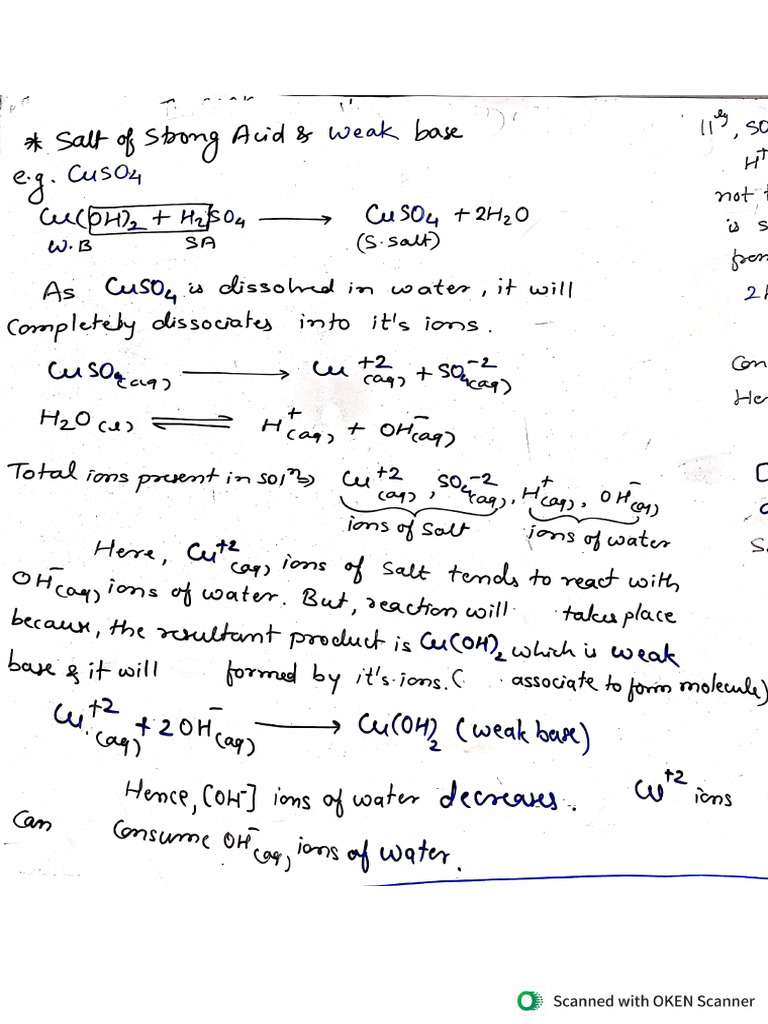 * Salt of Strong Acid & weak base
e.g. CuSO4
Cu(OH)2 + H2SO4 ⟶ CuSO4 + 2H2O
W.B SA (S.salt)
As CuSO4 is dissolved in water, it will
completely dissociates into it's ions.
CuSO4(aq) ⟶ Cu+2(aq) + SO4-2(aq)
H2O(l) ⇌ H+(aq) + OH-(aq)
Total ions present in solⁿ⇒ Cu+2(aq), SO4-2(aq), H+(aq), OH-(aq)
ions of salt ions of water
Here, Cu+2(aq) ions of salt tends to react with
OH-(aq) ions of water. But, reaction will takes place
because, the resultant product is Cu(OH)2 which is weak
base & it will formed by it's ions. ( associate to form molecule)
Cu+2(aq) + 2OH-(aq) ⟶ Cu(OH)2 (weak base)
Hence, [OH-] ions of water decreases. Cu+2 ions
can consume OH-(aq) ions of water.
11ly, so
H+
not
is s
from
2
Con
He
Scanned with OKEN Scanner